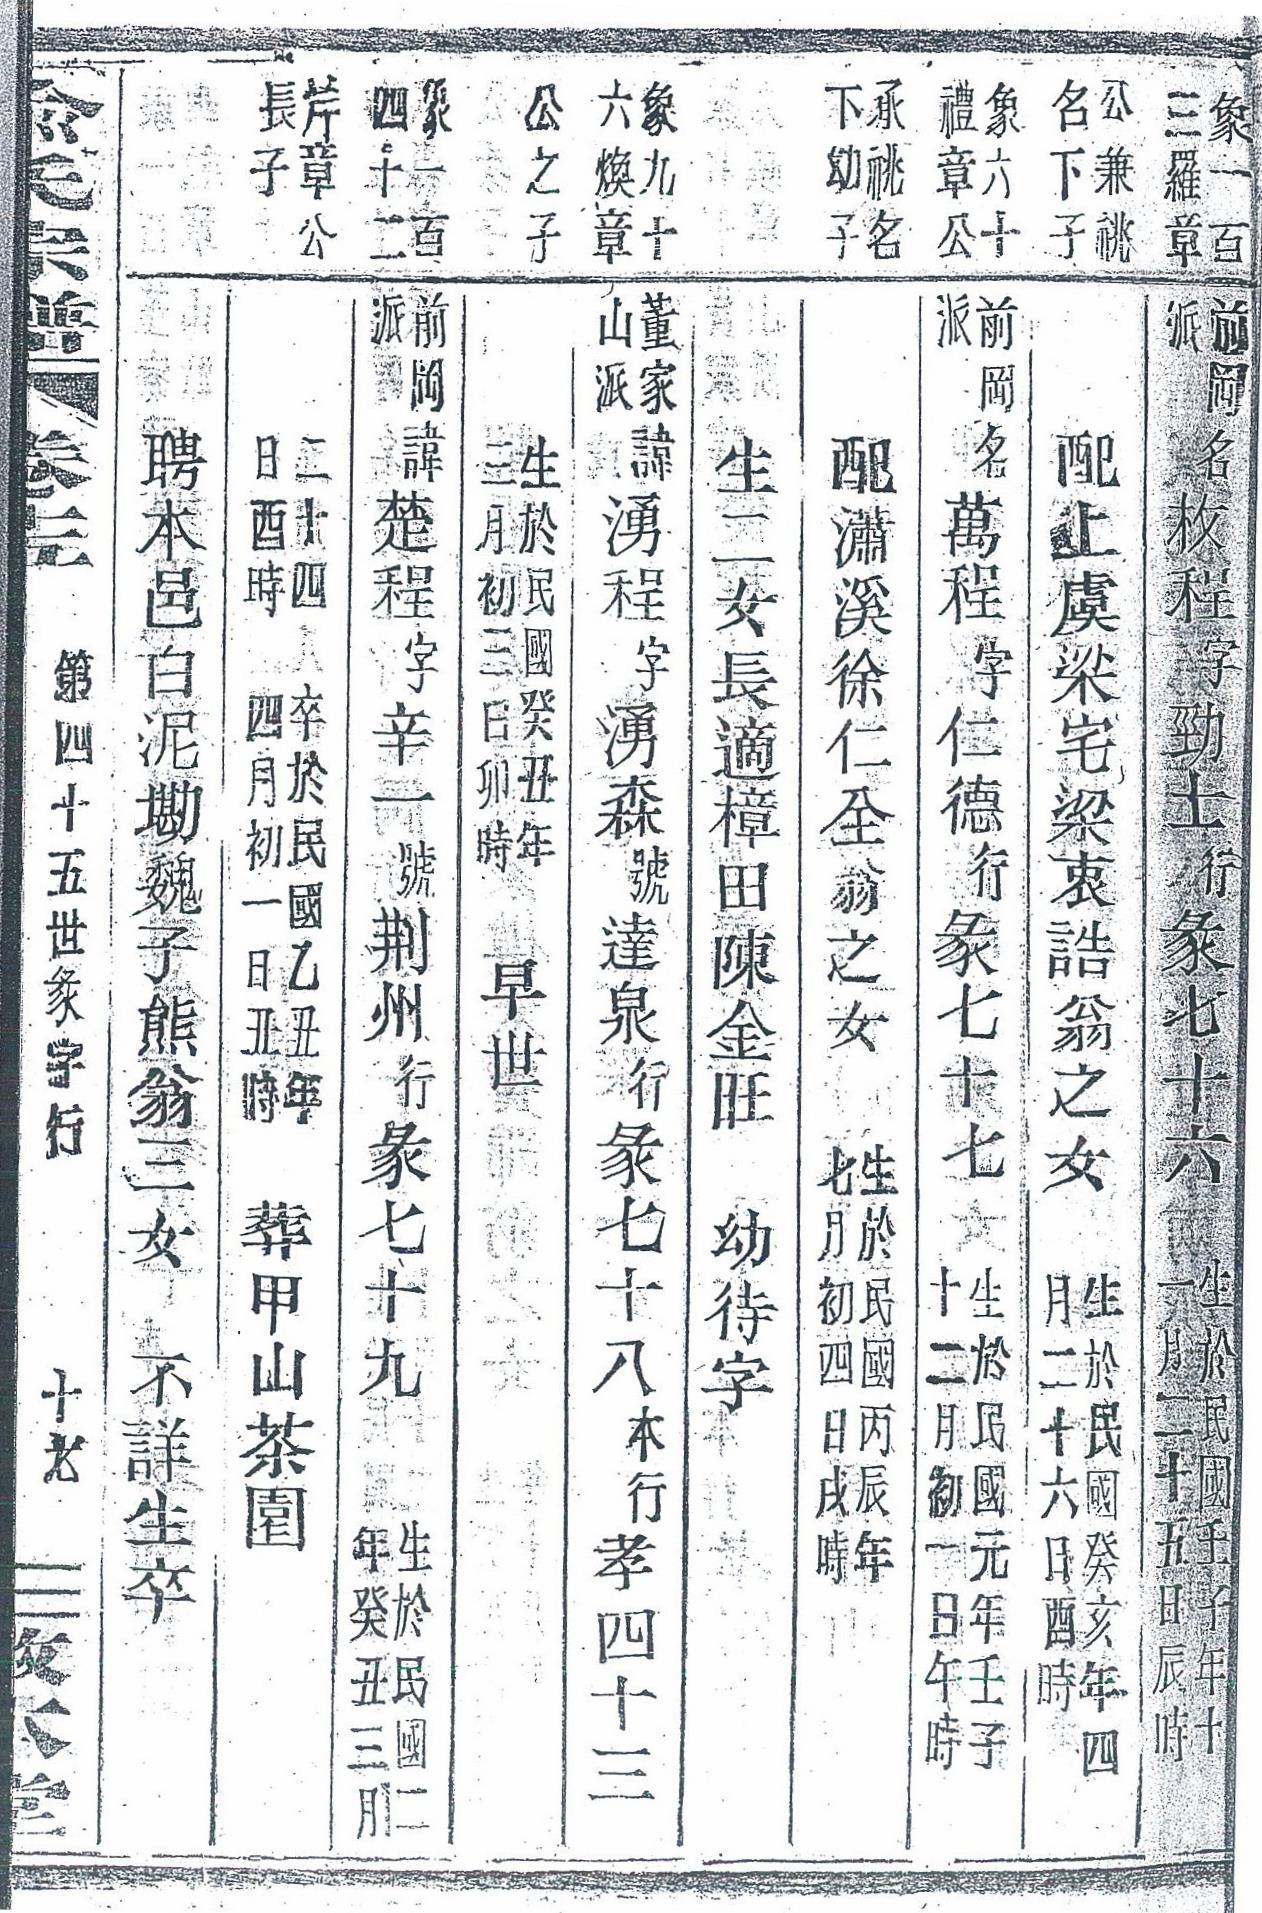 象一百三羅章
前岡派
名枚程字勁士行彖七十六
生於民國壬子年十一月二十五日辰時
公兼祧名下子
配上虞梁宅梁衷誥翁之女
生於民國癸亥年四月二十六日酉時
象六十禮章公
前岡派
名萬程字仁德行彖七十七
生於民國元年壬子十二月初一日午時
承祧名下幼子
配瀟溪徐仁全翁之女
生於民國丙辰年七月初四日戌時
生二女長適樟田陳金旺 幼待字
象九十六煥章
董家山派
諱湧程字湧森號達泉行彖七十八本行孝四十三
公之子
生於民國癸丑年三月初三日卯時
早世
象一百四十二
前岡派
諱楚程字辛一號荆州行彖七十九
生於民國二年癸丑三月
芹章公長子
二十四日酉時
卒於民國乙丑年四月初一日丑時
葬甲山茶園
聘本邑白泥墈魏子熊翁三女 不詳生卒
俞氏宗譜 卷三 第四十五世彖字行 十七 敦本堂